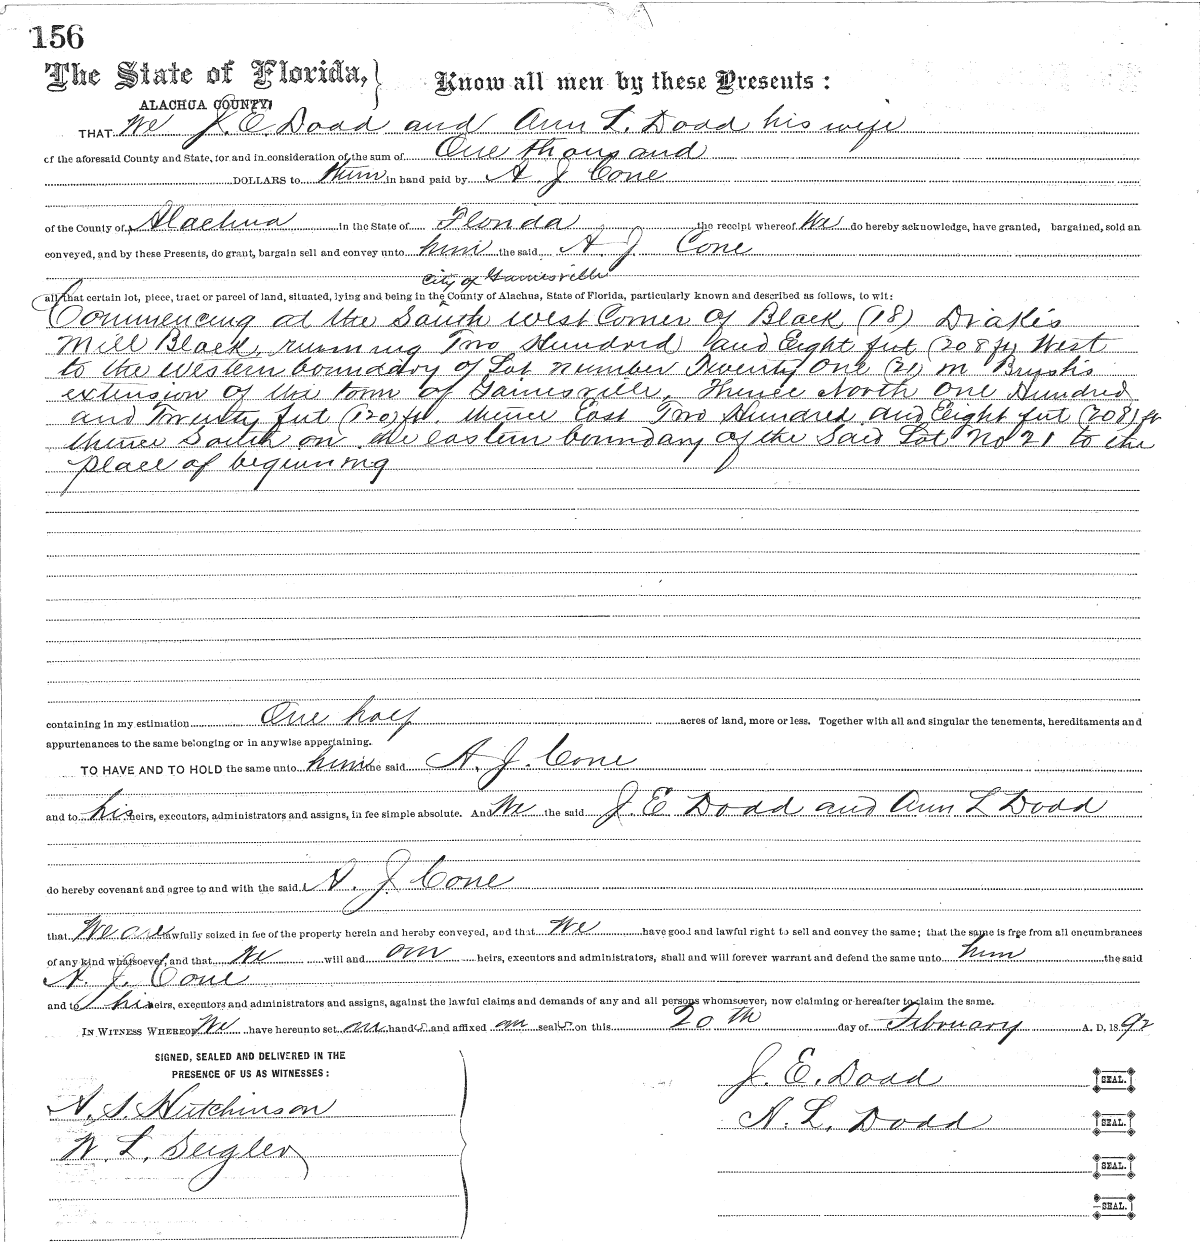 156
The State of Florida, } Know all men by these Presents :
ALACHUA COUNTY,
THAT We J. E. Dodd and Ann L. Dodd his wife
of the aforesaid County and State, for and in consideration of the sum of One thousand
DOLLARS to them in hand paid by A. J Cone
of the County of Alachua in the State of Florida the receipt whereof We do hereby acknowledge, have granted, bargained, sold an
conveyed, and by these Presents, do grant, bargain sell and convey unto him the said A J Cone
City of Gainesville
all that certain lot, piece, tract or parcel of land, situated, lying and being in the County of Alachua, State of Florida, particularly known and described as follows, to wit:
Commencing at the South west Corner of Block (18) Drake's
Mill Block, running Two Hundred and Eight feet (208 ft) West
to the western boundary of Lot number Twenty One (21) in Brush's
extension of the town of Gainesville, Thence North One Hundred
and Twenty feet (120) ft thence East Two Hundred and Eight feet (208) ft
thence South on the eastern boundary of the Said Lot No 21 to the
place of beginning
containing in my estimation One half acres of land, more or less. Together with all and singular the tenements, hereditaments and
appurtenances to the same belonging or in anywise appertaining.
TO HAVE AND TO HOLD the same unto him the said A. J. Cone
and to his heirs, executors, administrators and assigns, in fee simple absolute. And We the said J. E Dodd and Ann L Dodd
do hereby covenant and agree to and with the said A. J. Cone
that We are lawfully seized in fee of the property herein and hereby conveyed, and that We have good and lawful right to sell and convey the same; that the same is free from all encumbrances
of any kind whatsoever, and that We will and our heirs, executors and administrators, shall and will forever warrant and defend the same unto him the said
A. J. Cone
and to his heirs, executors and administrators and assigns, against the lawful claims and demands of any and all persons whomsoever, now claiming or hereafter to claim the same.
IN WITNESS WHEREOF, We have hereunto set our hands and affixed our seals on this 20th day of February A. D. 1892
SIGNED, SEALED AND DELIVERED IN THE
PRESENCE OF US AS WITNESSES:
J. E. Dodd SEAL.
A. S. Hutchinson
A. L. Dodd SEAL.
W. L. Seigler
SEAL.
SEAL.